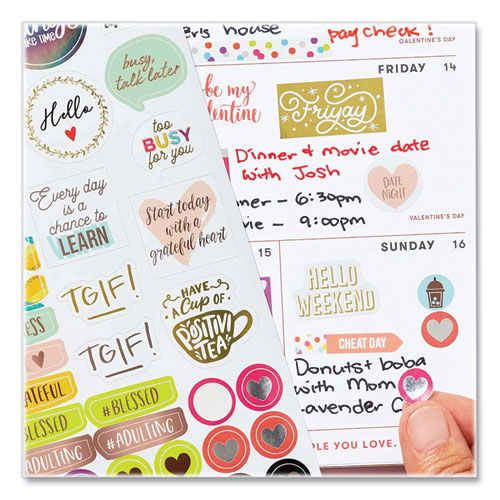 things
TAKE TIME
busy,
talk later
Hello
too
BUSY
for you
Every day
is a
chance to
LEARN
Start today
with a
grateful heart
TGIF!
TGIF!
HAVE
A Cup OF
POSITIVI
TEA
GRATEFUL
#BLESSED
#BLESSED
#ADULTING
#ADULTING
house
pay check!
GALENTINE'S DAY
FRIDAY 14
be my
Friyay
Dinner & movie date
with Josh
6:30pm
9:00pm
DATE
NIGHT
VALENTINE'S DAY
15
SUNDAY 16
HELLO
WEEKEND
CHEAT DAY
Donuts + boba
with Mom
YOU LOVE.